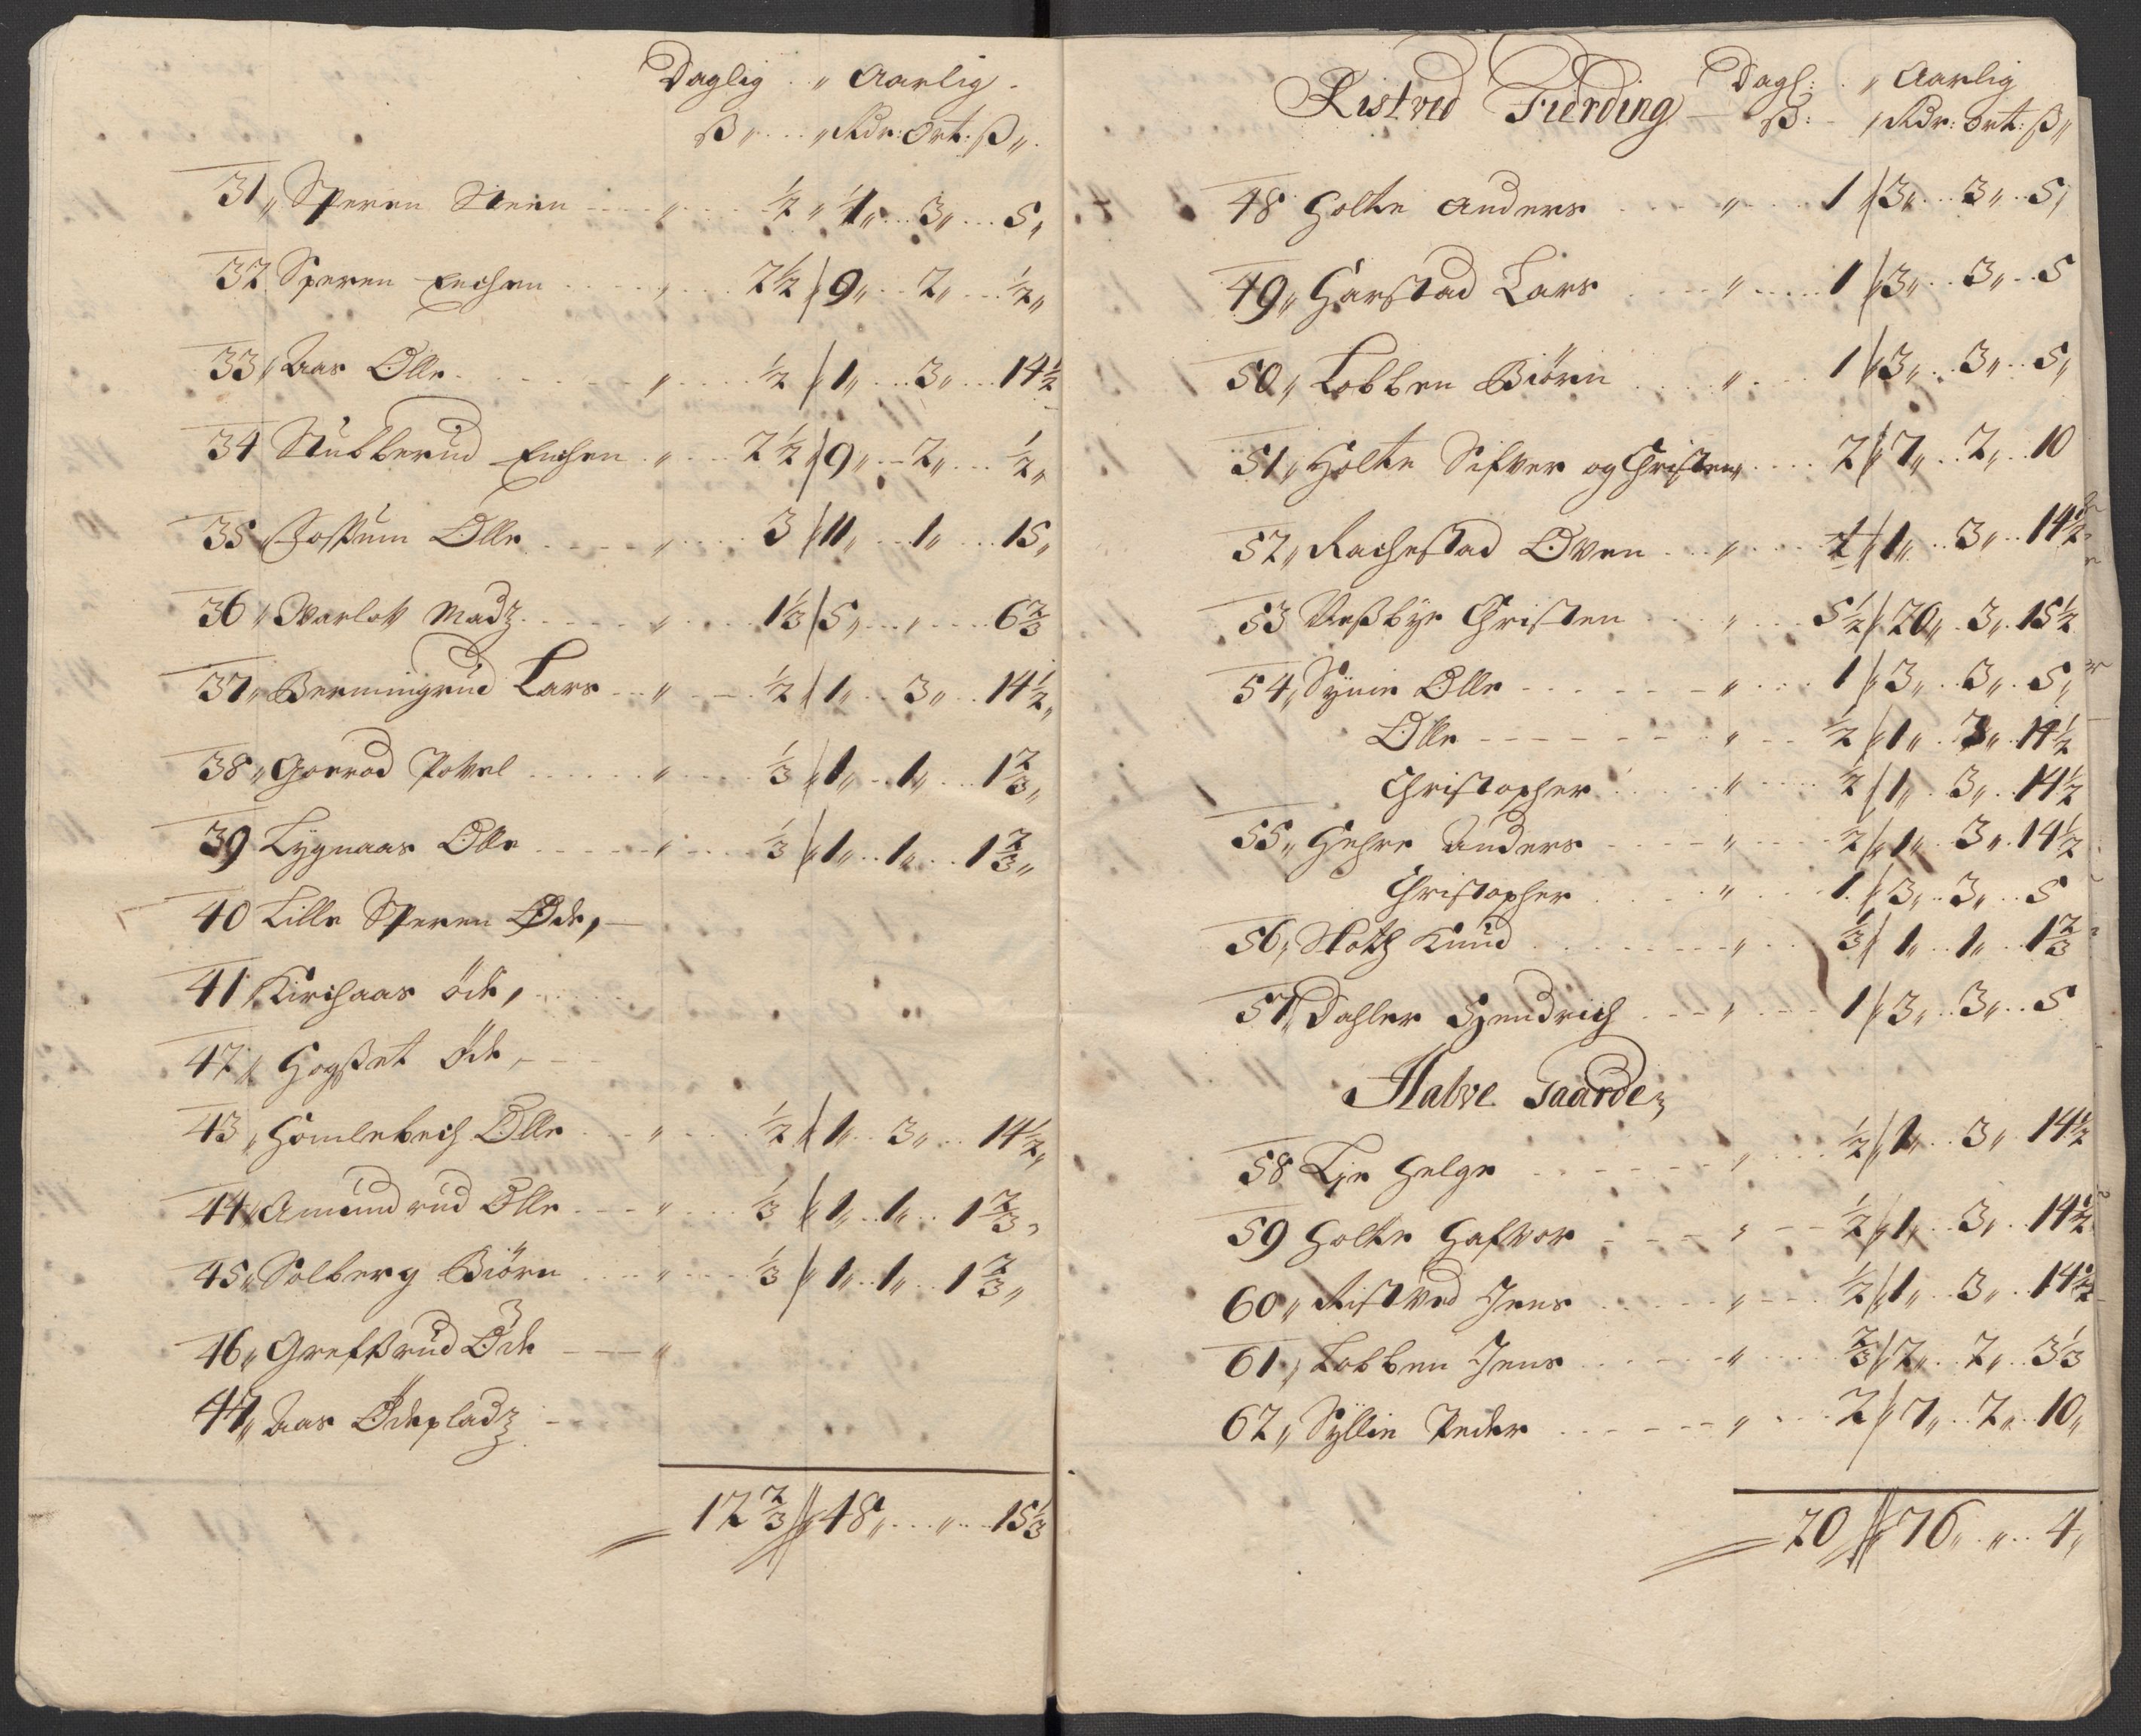 Daglig „ Aarlig.
ß „ „ Rdr: Ort: ß „
31 „ Speren Steen „ ½ „ 1 „ 3 „ 5 „
32 Speren „ 2½ „ 9 „ 2 „ ½ „
33 „ Aas Olle „ ½ „ 1 „ 3 „ 14½
34 Stubberud „ 2½ „ 9 „ 2 „ ½ „
35 „ Olle „ 3 „ 11 „ 1 „ 15 „
36 „ Warlo Madz „ 1⅓ „ 5 „ „ 6⅔
37 „ Bermingrud Lars „ ½ „ 1 „ 3 „ 14½ „
38 „ Goerod Povel „ ⅓ „ 1 „ 1 „ 1⅔ „
39 Lygnaas Olle „ ⅓ „ 1 „ 1 „ 1⅔ „
40 Lille Speren Øde,
41 Kirchaas öde,
42 „ Hogßet Öde,
43 „ Homlebech Olle „ ½ „ 1 „ 3 „ 14½ „
44 „ Amundrud Olle „ ⅓ „ 1 „ 1 „ 1⅔ „
45 „ Solberg Biörn „ ⅓ „ 1 „ 1 „ 1⅔ „
46 „ Grefßrud Öde „
47 „ Aas Ödepladz
12⅔ „ 48 „ „ 15⅓
Ristved Fierding Dagl: „ Aarlig
ß: „ Rdr: Ort: ß „
48 Holte Anders „ 1 „ 3 „ 3 „ 5 „
49 „ Harstad Lars „ 1 „ 3 „ 3 „ 5
50 „ Lobben Biörn „ 1 „ 3 „ 3 „ 5 „
51 „ Holte Sifver og Christen „ 2 „ 7 „ 2 „ 10
52 „ Rachestad Oven „ ½ „ 1 „ 3 „ 14½
53 Neßbye Christen „ 5½ „ 20 „ 3 „ 15½
54 „ Synie Olle „ 1 „ 3 „ 3 „ 5 „
Olle „ ½ „ 1 „ 3 „ 14½
Christopher „ ½ „ 1 „ 3 „ 14½
55 „ Hehre Anders „ ½ „ 1 „ 3 „ 14½
Christopher „ 1 „ 3 „ 3 „ 5
56 „ Knud „ ⅓ „ 1 „ 1 „ 1⅔
57 „ Dahler Hendrich „ 1 „ 3 „ 3 „ 5
Halve Gaarder
58 Lie Helge „ ½ „ 1 „ 3 „ 14½
59 Holte Hafvor „ ½ „ 1 „ 3 „ 14½
60 „ Ristved Jens „ ½ „ 1 „ 3 „ 14½
61 „ Lobben Jens „ ⅔ „ 2 „ 2 „ 3⅓
62 „ Syllie Peder „ 2 „ 7 „ 2 „ 10 „
20 „ 76 „ „ 4 „